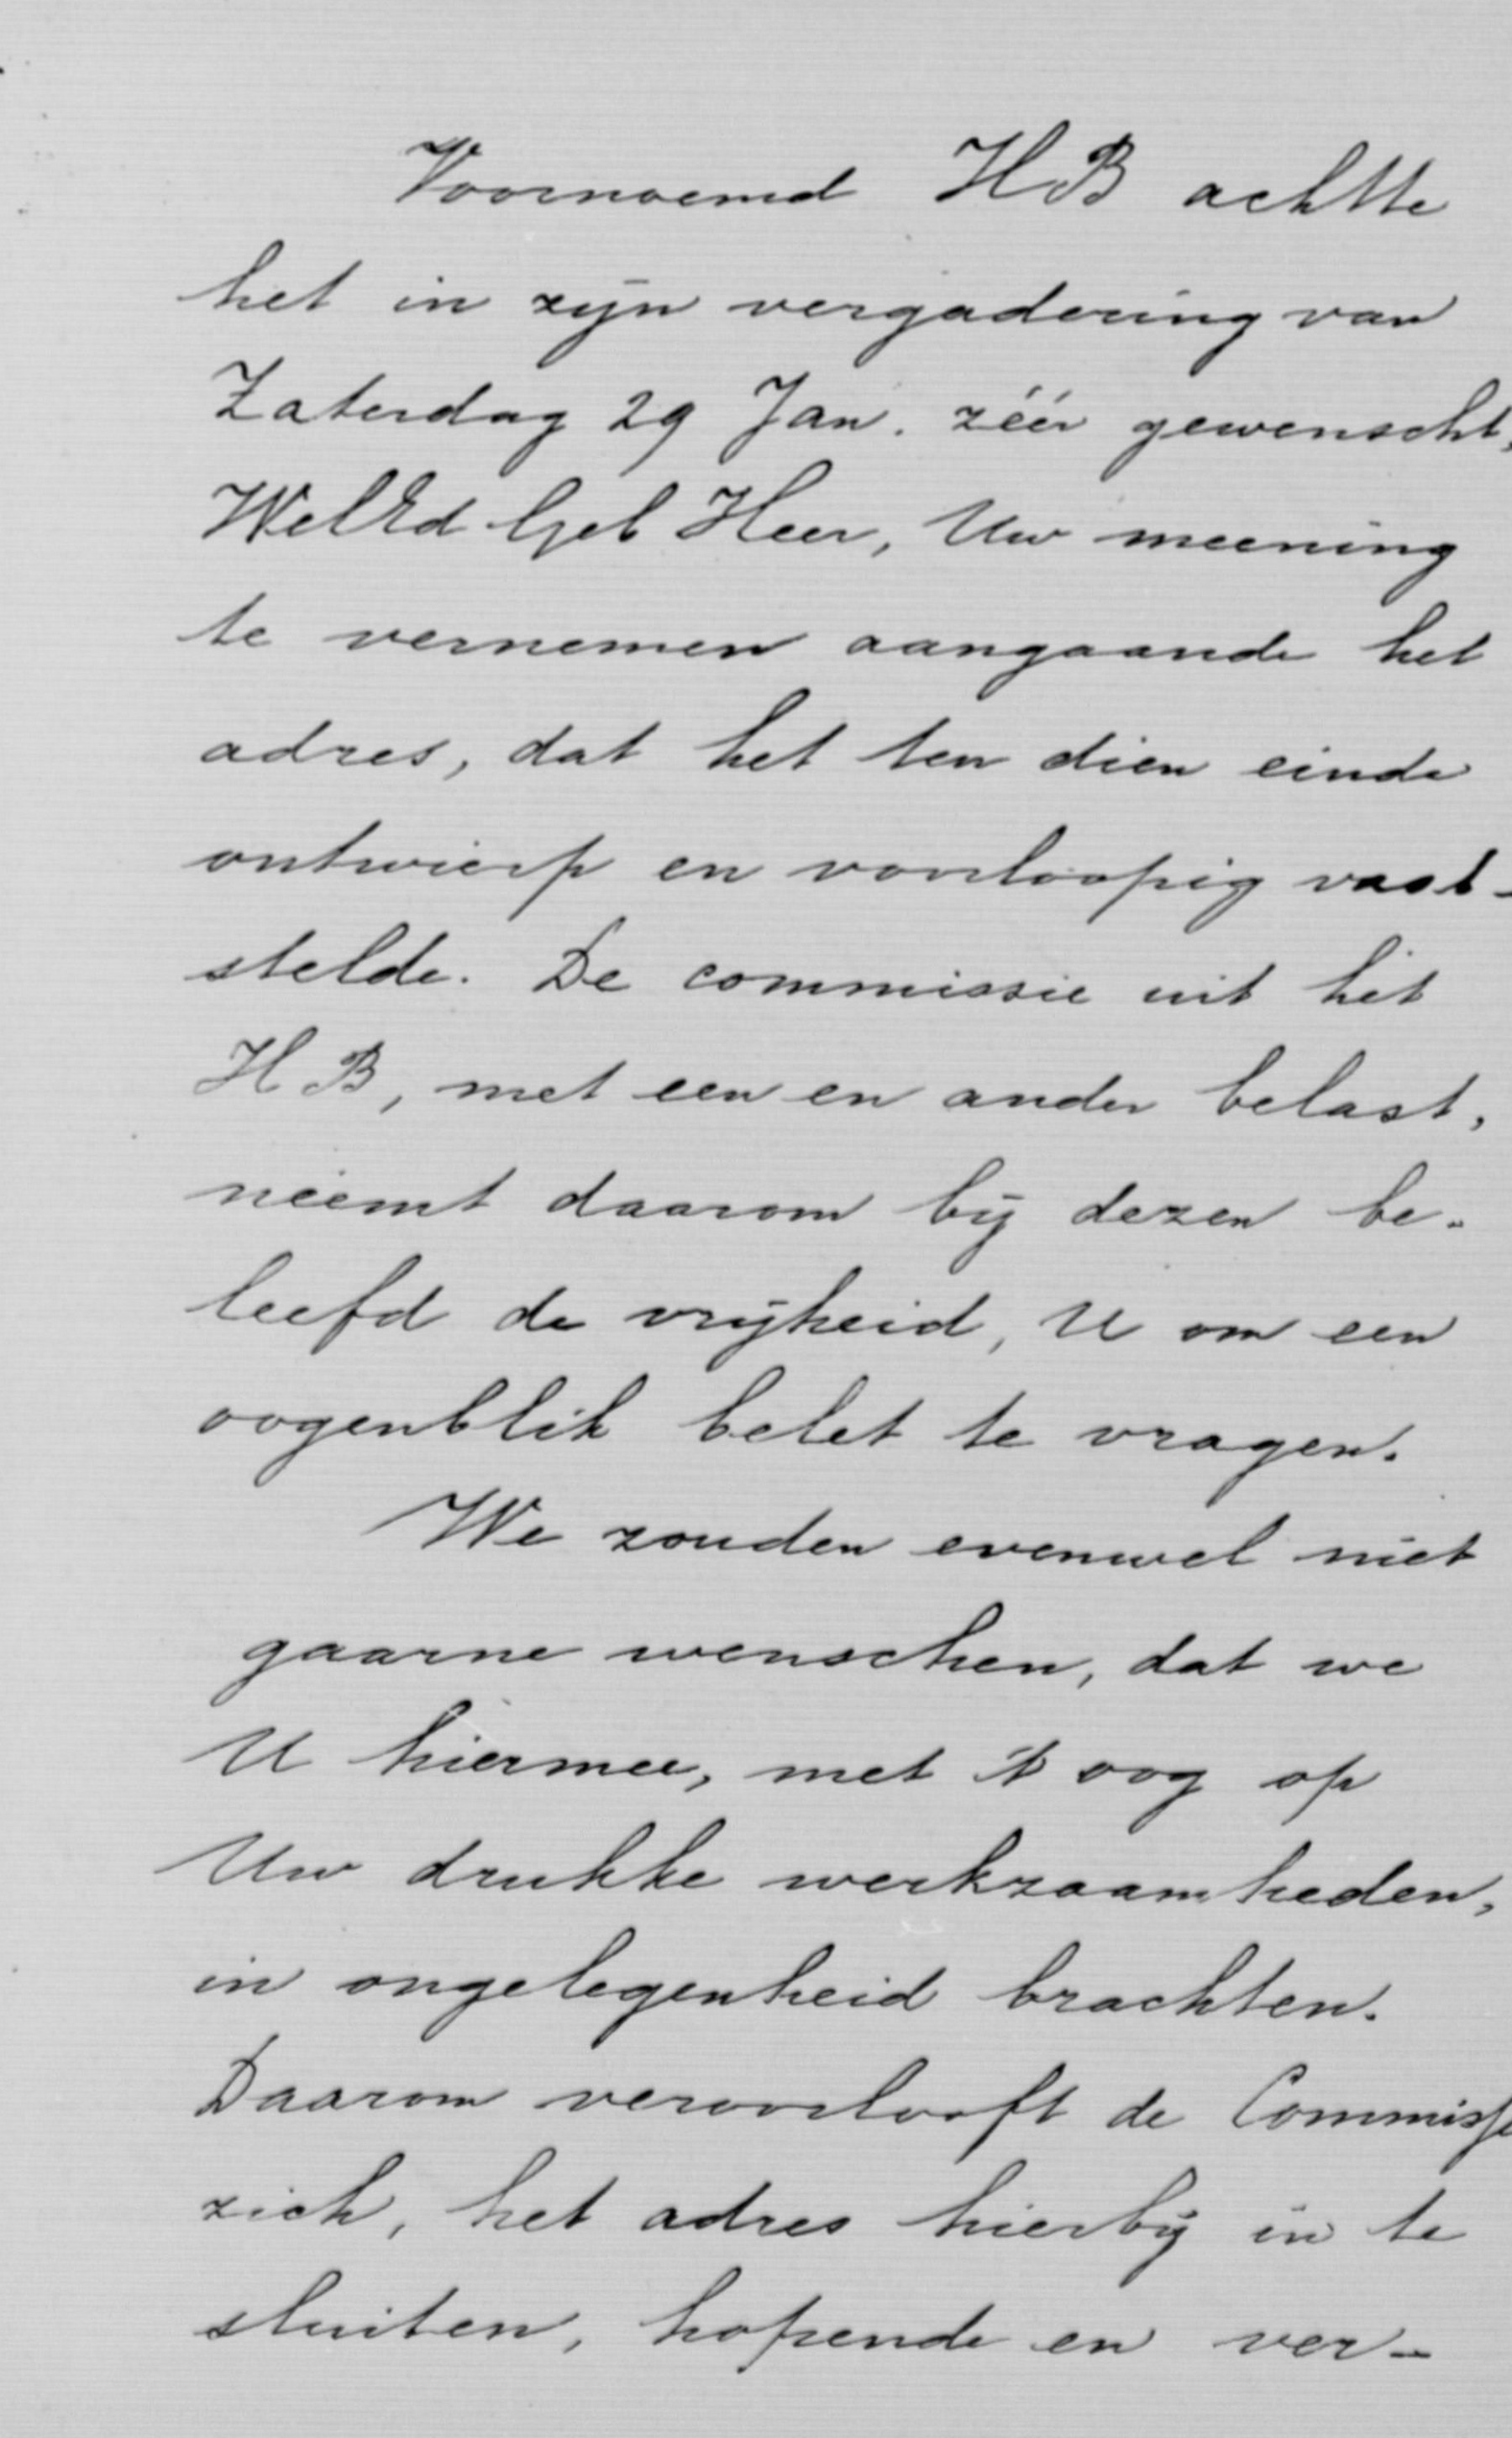 Voornoemd HB achtte
het in zijn vergadering van
Zaterdag 29 Jan. zéér gewenscht,
WelEd Gel Heer, Uw meening
te vernemen aangaande het
adres, dat het ten dien einde
ontwierp en voorloopig vast-
stelde. De commissie uit het
H B, met een en ander belast,
neemt daarom bij dezen be-
leefd de vrijheid, U om een
oogenblik belet te vragen.
We zouden evenwel niet
gaarne wenschen, dat we
U hiermee, met 't oog op
Uw drukke werkzaamheden,
in ongelegenheid brachten.
Daarom veroorlooft de Commissie
zich, het adres hierbij in te
sluiten, hopende en ver-